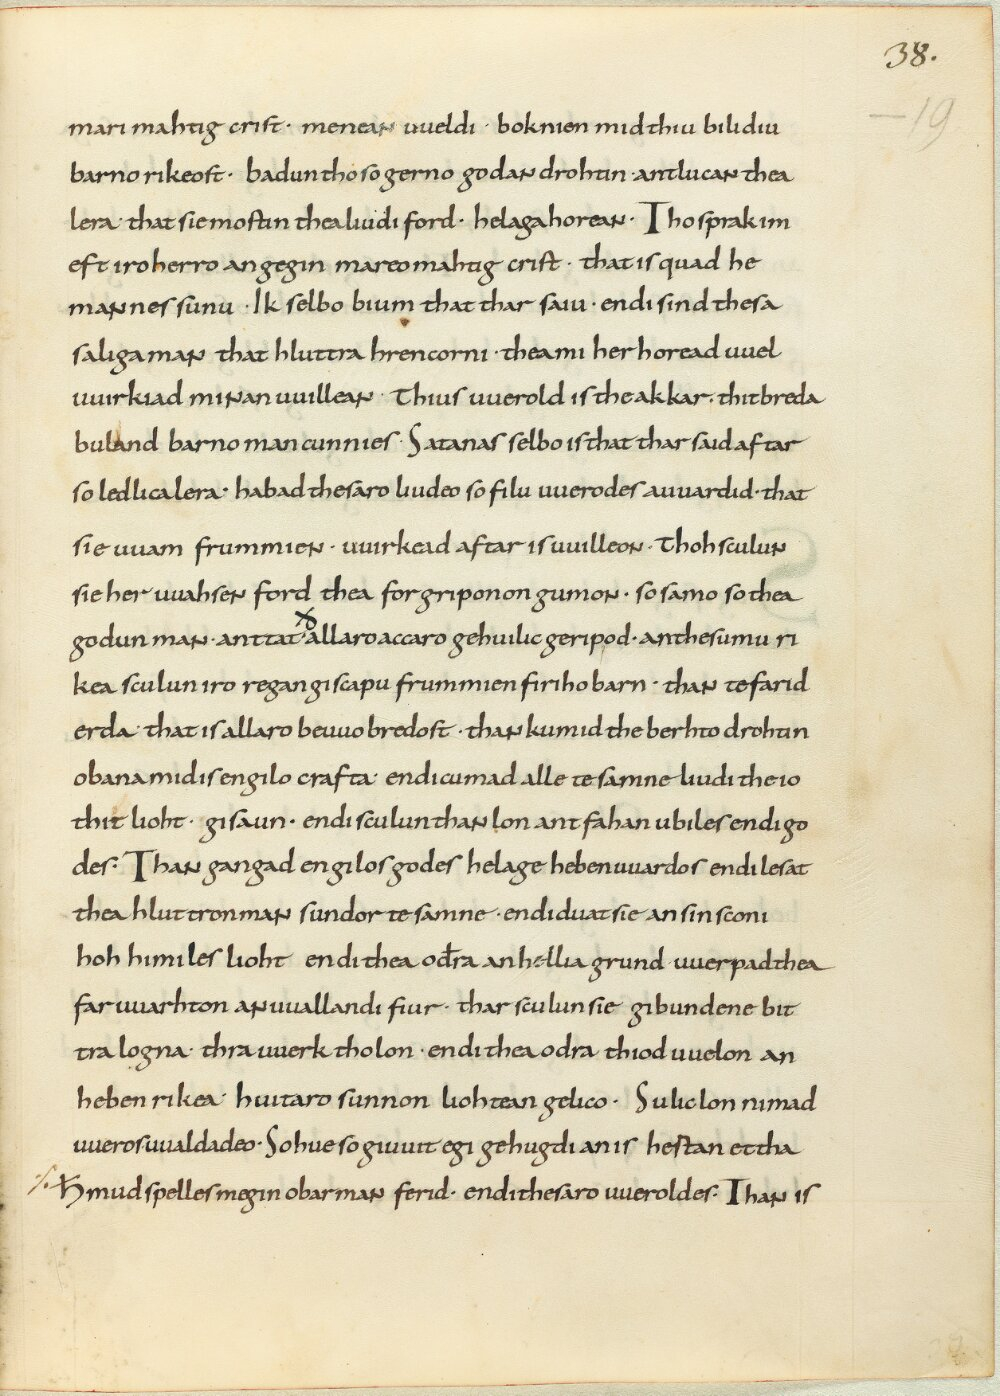 38.
-19
mari mahtig crist · menean uueldi · boknien mid thiu bilidiu
barno rikeost · badun tho so gerno godan drohtin · antlucan thea
lera · that sie mostin thea liudi ford · helaga horean · Tho sprak im
eft iro herro angegin mareo mahtig crist · that is quad he
mannes sunu · Ik selbo bium that thar saiu · endi sind thesa
saliga man that hluttra hrencorni · thea mi her horead uuel
uuirkiad minan uuillean · Thius uuerold is the akkar · thit breda
buland barno mancunnies · Satanas selbo is that thar said aftar
so ledlica lera · habad thesaro liudeo so filu uuerodes auuardid · that
sie uuam frummien · uuirkead aftar is uuilleon · Thoh sculun
sie her uuahsen ford thea forgriponon gumon · so samo so thea
godun man · anttat allaro accaro gehuilic geripod · an thesumu ri
kea sculun iro regangiscapu frummien firiho barn · than tefarid
erda · that is allaro beuuo bredost · than kumid the berhto drohtin
obana mid is engilo crafta · endi cumad alle tesamne liudi the io
thit lioht · gisaun · endi sculun than lon antfahan ubiles endi go
des · Than gangad engilos godes helage hebenuuardos endi lesat
thea hluttron man sundor tesamne · endi duat sie an sinsconi
hoh himiles lioht endi thea ođra an hellia grund uuerpad thea
faruuarhton an uuallandi fiur · thar sculun sie gibundene bit
tra logna · thra uuerk tholon · endi thea odra thiod uuelon an
hebenrikea · huitaro sunnon liohtean gelico · Sulic lon nimad
uueros uualdadeo · So hue so giuuit egi gehugdi an is hestan ettha
mud spelles megin obar man ferid · endi thesaro uueroldes · Than is